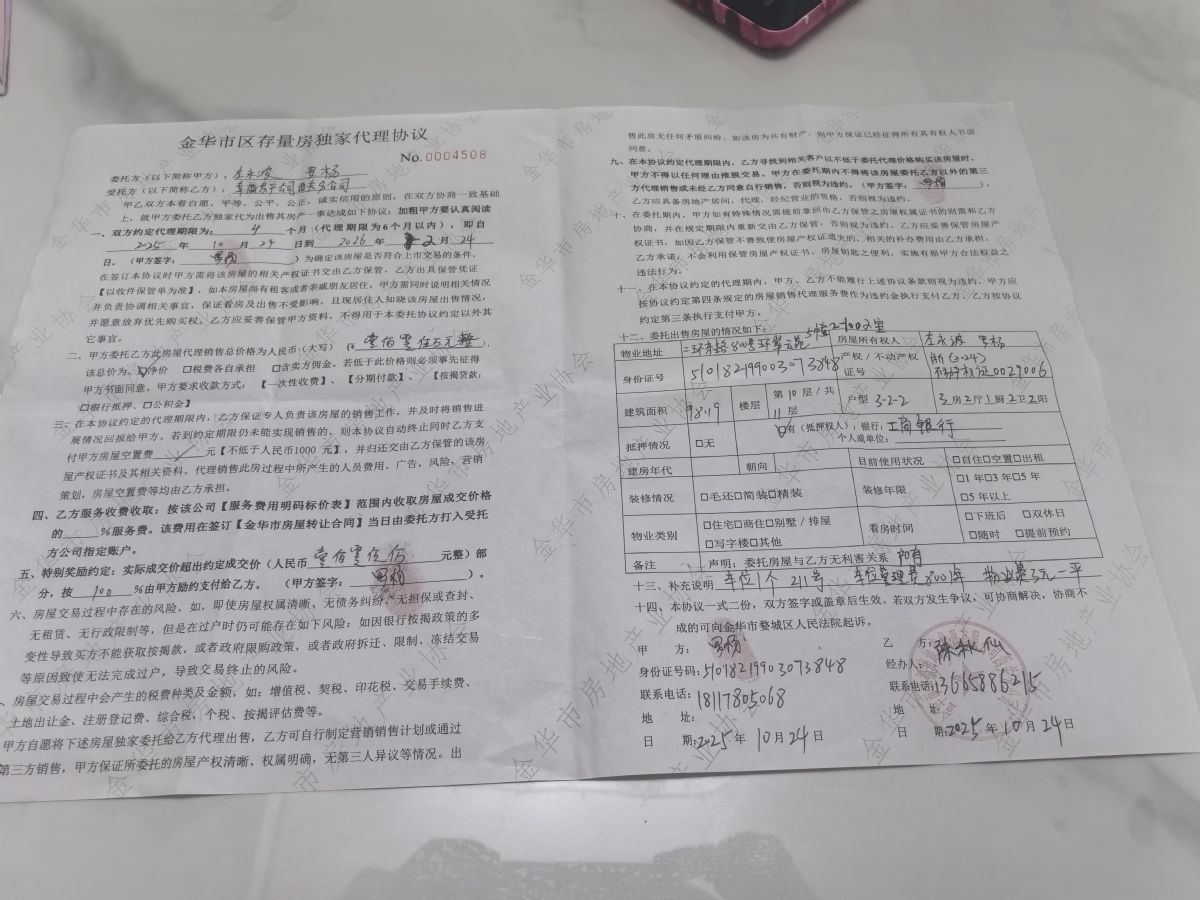 金华市区存量房独家代理协议
No.0004508
委托方（以下简称甲方）：左永波
受托方（以下简称乙方）：
甲乙双方本着自愿、平等、公平、公正，诚实信用的原则，在双方协商一致基础
上，就甲方委托乙方独家代为出售其房产一事达成如下协议：加粗甲方要认真阅读
一、双方约定代理期限为：4 个月（代理期限为6个月以内），即自
2025 年 10 月 24 日到 2026 年 2 月 24
日。（甲方签字： ）为确定该房屋是否符合上市交易的条件，
在签订本协议时甲方需将该房屋的相关产权证书交由乙方保管，乙方出具保管凭证
【以收件保管单为准】，如本房屋尚有租客或者亲戚朋友居住，甲方需同时说明相关情况
并负责协调相关事宜，保证看房及出售不受影响，且现居住人知晓该房屋出售情况，
并愿意放弃优先购买权。乙方应妥善保管甲方资料，不得用于本委托协议约定以外其
它事宜。
二、甲方委托乙方此房屋代理销售总价格为人民币（大写）（¥ 壹佰零伍万元整），
该总价为：☑净价 □税费各自承担 □含卖方佣金。若低于此价格则必须事先征得
甲方书面同意。甲方要求收款方式：【一次性收费】、【分期付款】、【按揭贷款：
□银行抵押、□公积金】
三、在本协议约定的代理期限内，乙方保证专人负责该房屋的销售工作，并及时将销售进
展情况回报给甲方。若到约定期限仍未能实现销售的，则本协议自动终止同时乙方支
付甲方房屋空置费 元【不低于人民币1000 元】，并归还交由乙方保管的该房
屋产权证书及其相关资料。代理销售此房过程中所产生的人员费用、广告，风险，营销
策划，房屋空置费等均由乙方承担。
四、乙方服务收费收取：按该公司【服务费用明码标价表】范围内收取房屋成交价格
的 %服务费。该费用在签订【金华市房屋转让合同】当日由委托方打入受托
方公司指定账户。
五、特别奖励约定：实际成交价超出约定成交价（人民币 壹佰零伍万 元整）部
分，按 100 %由甲方励约支付给乙方。（甲方签字： ）。
六、房屋交易过程中存在的风险，如，即使房屋权属清晰、无债务纠纷、无担保或查封、
无租赁、无行政限制等，但是在过户时仍可能存在如下风险：如因银行按揭政策的多
变性导致买方不能获取按揭款，或者政府限购政策，或者政府拆迁、限制、冻结交易
等原因致使无法完成过户，导致交易终止的风险。
、房屋交易过程中会产生的税费种类及金额，如：增值税、契税、印花税、交易手续费、
土地出让金、注册登记费、综合税、个税、按揭评估费等。
甲方自愿将下述房屋独家委托给乙方代理出售，乙方可自行制定营销销售计划或通过
第三方销售，甲方保证所委托的房屋产权清晰、权属明确，无第三人异议等情况。出
售此房无任何矛盾纠纷，如该房为共有财产，则甲方保证已经征得所有共有权人书面
同意。
九、在本协议约定代理期限内，乙方寻找到相关客户以不低于委托代理价格购买该房屋时，
甲方不得以任何理由推脱交易。甲方在委托期内不得将该房屋委托乙方以外的第三
方代理销售或未经乙方同意自行销售，否则视为违约。（甲方签字： ），
乙方应具备房地产居间、代理、经纪营业的资格，否则视为违约。
十、在委托期内，甲方如有特殊情况需提前拿回由乙方保管之房屋权属证书的则需和乙方
协商，并在规定期限内重新交由乙方保管，否则视为违约。乙方应妥善保管房屋产
权证书，如因乙方保管不善致使房屋产权证遗失的，相关的补办费用由乙方承担。
乙方承诺：不会利用保管房屋产权证书、房屋钥匙之便利，实施有损甲方合法权益之
违法行为。
十一、在本协议约定的代理期内，甲方、乙方不能履行上述协议条款则视为违约，甲方应
按协议约定第四条规定的房屋销售代理服务费作为违约金执行支付乙方，乙方按协议
约定第三条执行支付甲方。
十二、委托出售房屋的情况如下：
物业地址 二环东路 环翠云苑5幢2-1002室 房屋所有权人 左永波
身份证号 510182199003073848 产权／不动产权证号 浙(2024) 0029006
建筑面积 98.19 楼层 第10层／共11层 户型 3-2-2 3房2厅1厨2卫2阳
抵押情况 □无 □有（抵押权人）：银行：工商银行
个人或单位：
建房年代 朝向 目前使用状况 □自住□空置□出租
装修情况 □毛还□简装□精装 装修年限 □1年□3年□5年
□5年以上
物业类别 □住宅□商住□别墅／排屋 看房时间 □下班后 □双休日
□写字楼□其他 □随时 □提前预约
备注 声明：委托房屋与乙方无利害关系
十三、补充说明 车位1个 211号 车位管理费8001年 物业费3元一平
十四、本协议一式二份，双方签字或盖章后生效。若双方发生争议，可协商解决，协商不
成的可向金华市婺城区人民法院起诉。
甲 方：
身份证号码：510182199003073848
联系电话：18117805068
地 址：
日 期：2025 年 10 月 24 日
乙 方：陈秋仙
经办人：
联系电话：13665886215
地 址：
日 期：2025 年 10 月 24 日